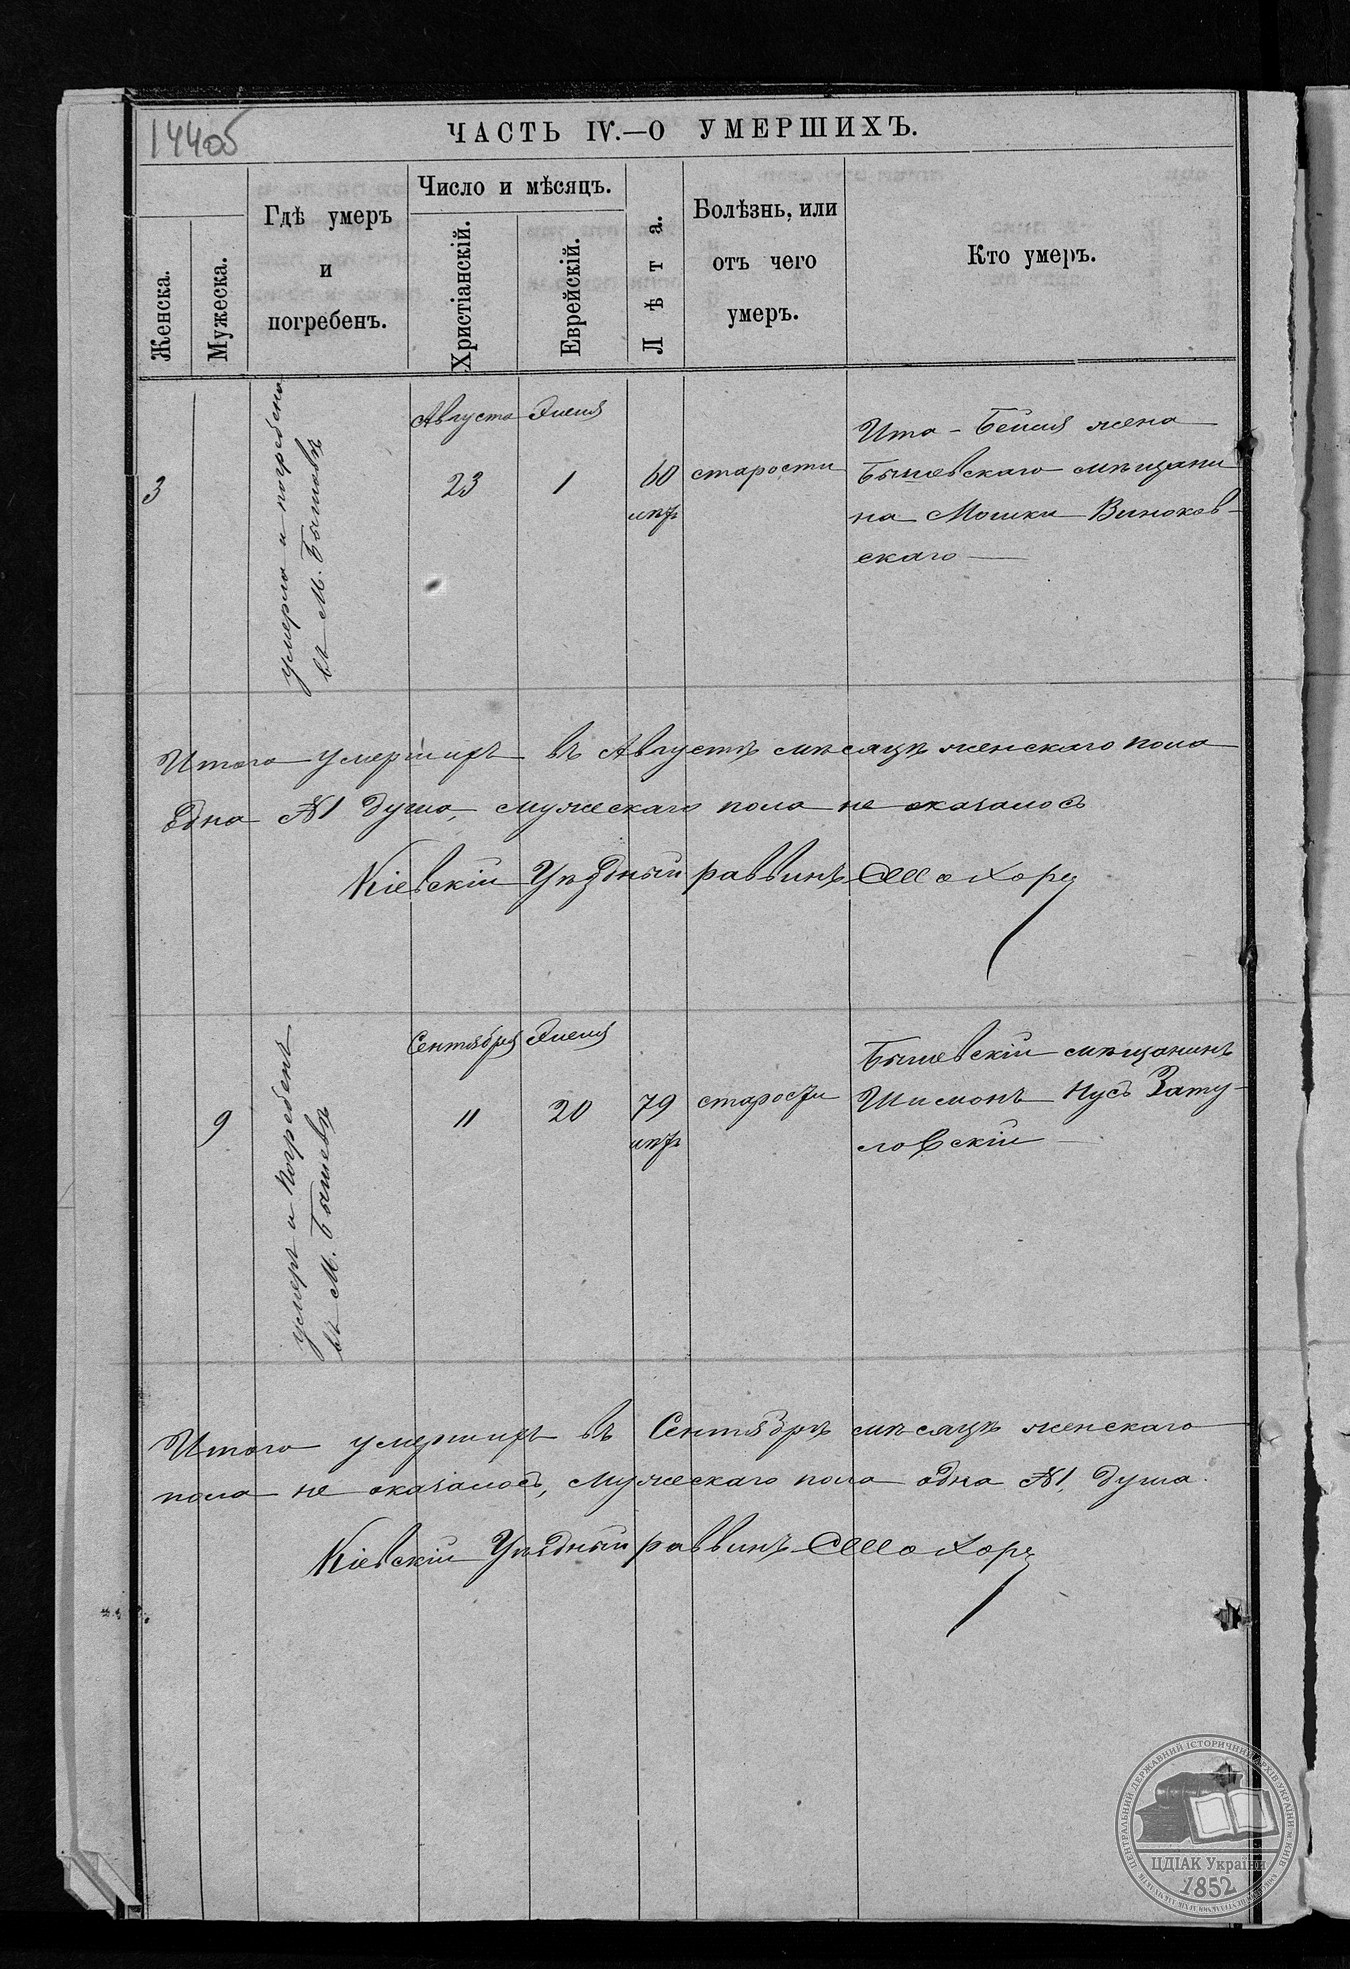 14405
ЧАСТЬ IV.—О УМЕРШИХЪ.
Женска.
Мужеска.
Гдѣ умеръ
и
погребенъ.
Число и мѣсяцъ.
Христіанскій.
Еврейскій.
Лѣта.
Болѣзнь, или
отъ чего
умеръ.
Кто умеръ.
3
умерла и погребена
въ М. Бышевѣ
Августа
23
Элепя
1
60
лѣтъ
старости
Ита - Бейля жена
Бышевскаго мѣщани
на Мошки Виноков-
скаго
Итого умершихъ въ Августѣ мѣсяцѣ женскаго пола
Одна №1 душа, мужескаго пола не оказалось
Кіевскій Уѣздный раввинъ
9
умеръ и погребенъ
въ М. Бышевѣ
Сентября
11
Элепя
20
79
лѣтъ
старости
Бышевскій мѣщанинъ
Шимонъ Нусъ Зату-
ловскій
Итого умершихъ въ Сентябрѣ мѣсяцѣ женскаго
пола не оказалось, Мужескаго пола одна №1, душа.
Кіевскій Уѣздный раввинъ
ЦЕНТРАЛЬНИЙ ДЕРЖАВНИЙ ІСТОРИЧНИЙ АРХІВ УКРАЇНИ, м. КИЇВ
ЦДІАК України
1852